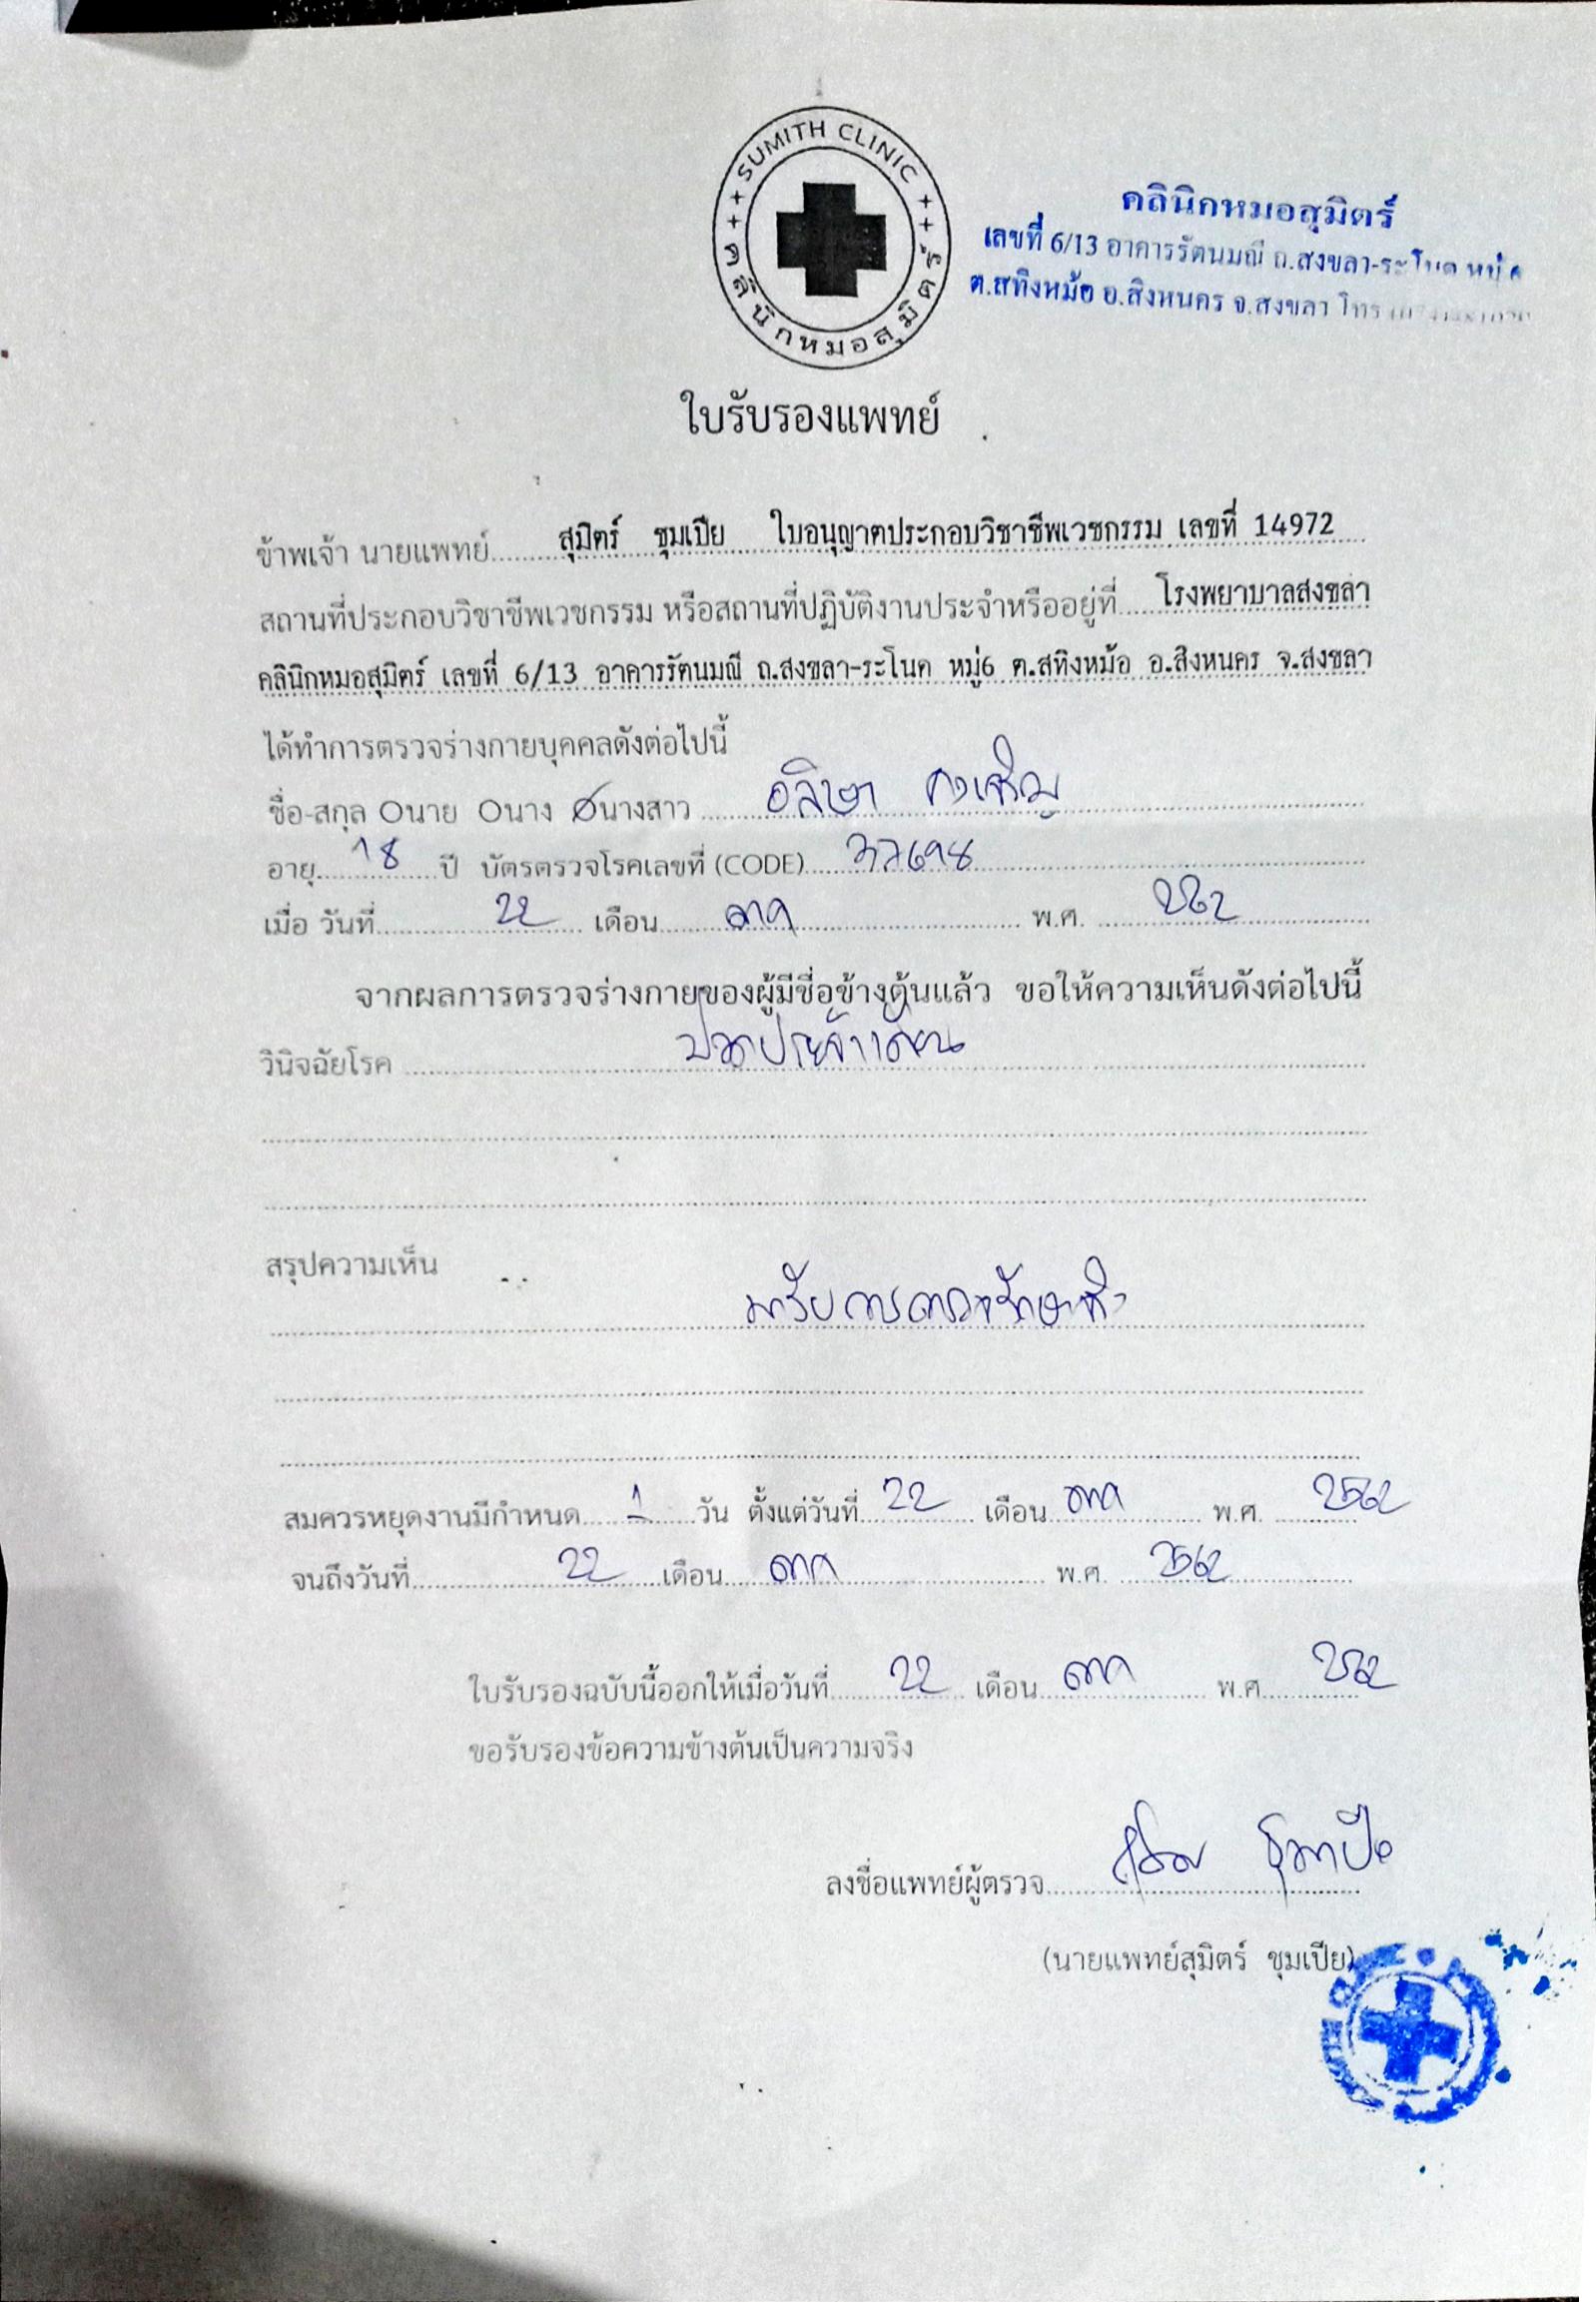 ++ SUMITH CLINIC ++
คลินิกหมอสุมิตร์
คลินิกหมอสุมิตร์
เลขที่ 6/13 อาคารรัตนมณี ถ.สงขลา-ระโนด หมู่ 6
ต.สทิงหม้อ อ.สิงหนคร จ.สงขลา โทร
ใบรับรองแพทย์
ข้าพเจ้า นายแพทย์ สุมิตร์ ชุมเปีย ใบอนุญาตประกอบวิชาชีพเวชกรรม เลขที่ 14972
สถานที่ประกอบวิชาชีพเวชกรรม หรือสถานที่ปฏิบัติงานประจำหรืออยู่ที่ โรงพยาบาลสงขลา
คลินิกหมอสุมิตร์ เลขที่ 6/13 อาคารรัตนมณี ถ.สงขลา-ระโนด หมู่6 ต.สทิงหม้อ อ.สิงหนคร จ.สงขลา
ได้ทำการตรวจร่างกายบุคคลดังต่อไปนี้
ชื่อ-สกุล Oนาย Oนาง Oนางสาว อลิษา
อายุ 18 ปี บัตรตรวจโรคเลขที่ (CODE)
เมื่อ วันที่ 22 เดือน ตค พ.ศ.
จากผลการตรวจร่างกายของผู้มีชื่อข้างต้นแล้ว ขอให้ความเห็นดังต่อไปนี้
วินิจฉัยโรค ปวดประจำเดือน
สรุปความเห็น
มารับการตรวจรักษาจริง
สมควรหยุดงานมีกำหนด 1 วัน ตั้งแต่วันที่ 22 เดือน ตค พ.ศ. 2562
จนถึงวันที่ 22 เดือน ตค พ.ศ. 2562
ใบรับรองฉบับนี้ออกให้เมื่อวันที่ 22 เดือน ตค พ.ศ. 2562
ขอรับรองข้อความข้างต้นเป็นความจริง
ลงชื่อแพทย์ผู้ตรวจ
(นายแพทย์สุมิตร์ ชุมเปีย)